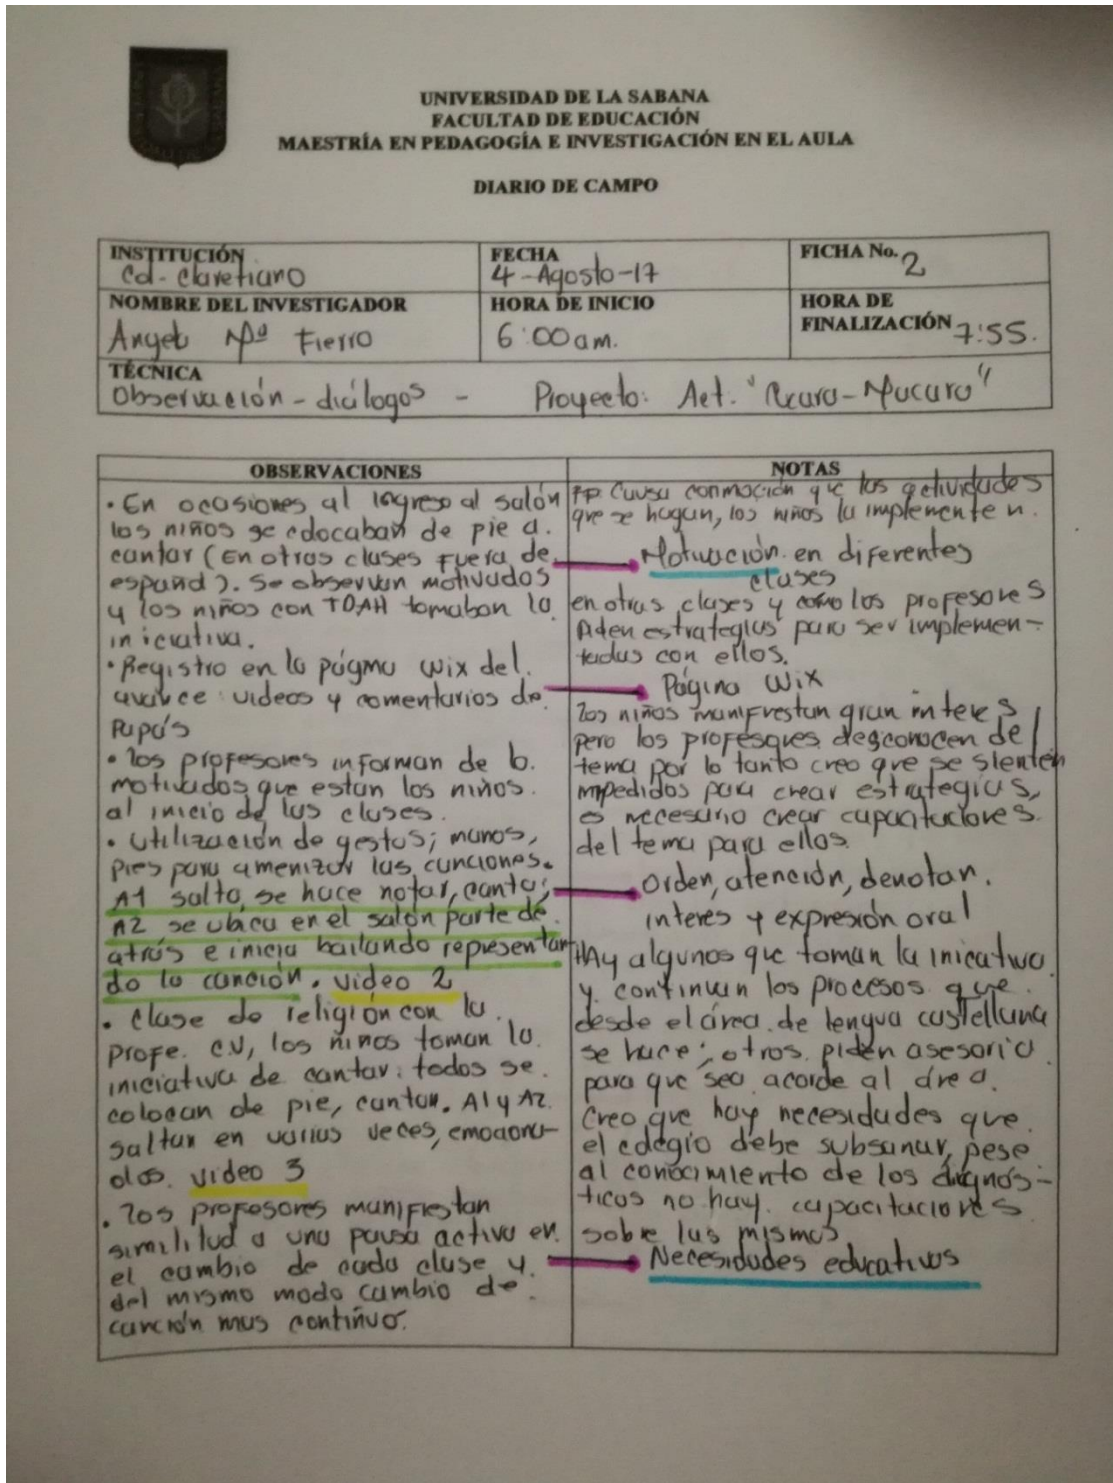 UNIVERSIDAD DE LA SABANA
FACULTAD DE EDUCACIÓN
MAESTRÍA EN PEDAGOGÍA E INVESTIGACIÓN EN EL AULA
DIARIO DE CAMPO
INSTITUCIÓN
Col- Claretiano
FECHA
4-Agosto-17
FICHA No. 2
NOMBRE DEL INVESTIGADOR
Angel Mª Fierro
HORA DE INICIO
6:00 am.
HORA DE
FINALIZACIÓN 7:55.
TÉCNICA
Observación - diálogos - Proyecto: Act. "Mucaro"
OBSERVACIONES
• En ocasiones al ingreso al salón
los niños se colocaban de pie a.
cantar (En otras clases fuera de
español). Se observan motivados
y los niños con TDAH tomaban la
iniciativa.
• Registro en la página wix del.
avance: videos y comentarios de
Papás
• los profesores informan de lo.
motivados que estan los niños.
al inicio de las clases.
• utilización de gestos; manos,
pies para amenizar las canciones.
A1 salta, se hace notar, canta;
A2 se ubica en el salón parte de
atrás e inicia bailando representan
do la canción. video 2
• Clase de religión con la.
profe. C.V, los niños toman la.
iniciativa de cantar: todos se.
colocan de pie, cantan. A1 y A2.
saltan en varias veces, emociona-
dos. video 3
• Los profesores manifiestan
similitud a una pausa activa en.
el cambio de cada clase y.
del mismo modo cambio de.
canción mas contiñuo.
NOTAS
PP. Causa conmoción que las actividades
que se hagan, los niños la implementen.
Motivación en diferentes
clases
en otras clases y como los profesores
piden estrategias para ser implemen-
tadas con ellos.
Página Wix
Los niños manifiestan gran interes,
pero los profesores desconocen del
tema por lo tanto creo que se sienten
impedidos para crear estrategias,
es necesario crear capacitaciones.
del tema para ellos.
Orden, atención, denotan.
interes y expresión oral
HAy algunos que toman la inicativa.
y. continuan los procesos que.
desde el área. de lengua castellana
se hace; otros. piden asesoria
para que sea acorde al área.
Creo que hay necesidades que.
el colegio debe subsanar, pese
al conocimiento de los diagnós-
ticos no hay. capacitaciones
sobre las mismas
Necesidades educativas